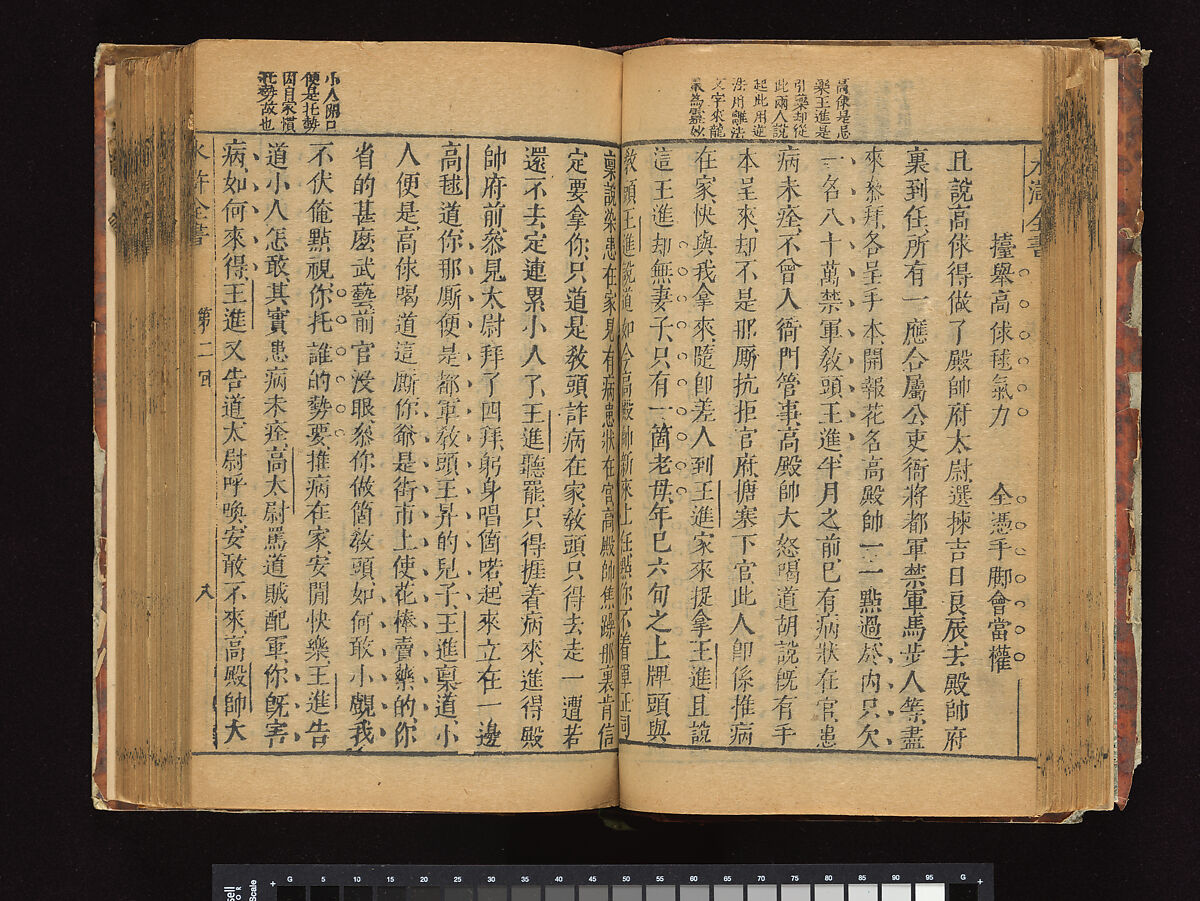 水滸全書
高俅是忌
樂王進是
引藥却從
此兩人說
起此用
法用離法
文字來龍
擡舉高俅毬氣力　全憑手脚會當權
且說高俅得做了殿帥府太尉選揀吉日良辰去殿帥府
裏到任所有一應合屬公吏衙將都軍禁軍馬步人等盡
來叅拜各呈手本開報花名高殿帥一一點過於內只欠
一名八十萬禁軍敎頭王進半月之前已有病狀在官患
病未痊不曾入衙門管事高殿帥大怒喝道胡說旣有手
本呈來却不是那厮抗拒官府搪塞下官此人卽係推病
在家快與我拿來隨卽差人到王進家來捉拿王進且說
這王進却無妻子只有一箇老母年已六旬之上牌頭與
敎頭王進說道如今高殿帥新來上任點你不着軍正司
小人開口
便是托勢
因自家慣
托勢故也
稟說染患在家見有病患狀在官高殿帥焦躁那裏肯信
定要拿你只道是敎頭詐病在家敎頭只得去走一遭若
還不去定連累小人了王進聽罷只得捱着病來進得殿
帥府前叅見太尉拜了四拜躬身唱箇喏起來立在一邊
高毬道你那厮便是都軍敎頭王昇的兒子王進稟道小
人便是高俅喝道這厮你爺是街市上使花棒賣藥的你
省的甚麽武藝前官沒眼叅你做箇敎頭如何敢小覷我
不伏俺點視你托誰的勢要推病在家安閒快樂王進告
道小人怎敢其實患病未痊高太尉罵道賊配軍你旣害
病如何來得王進又告道太尉呼喚安敢不來高殿帥大
水滸全書　第二回
G 5 10 15 20 25 30 35 40 45 50 55 60 65 70 75 80 85 90 95 G